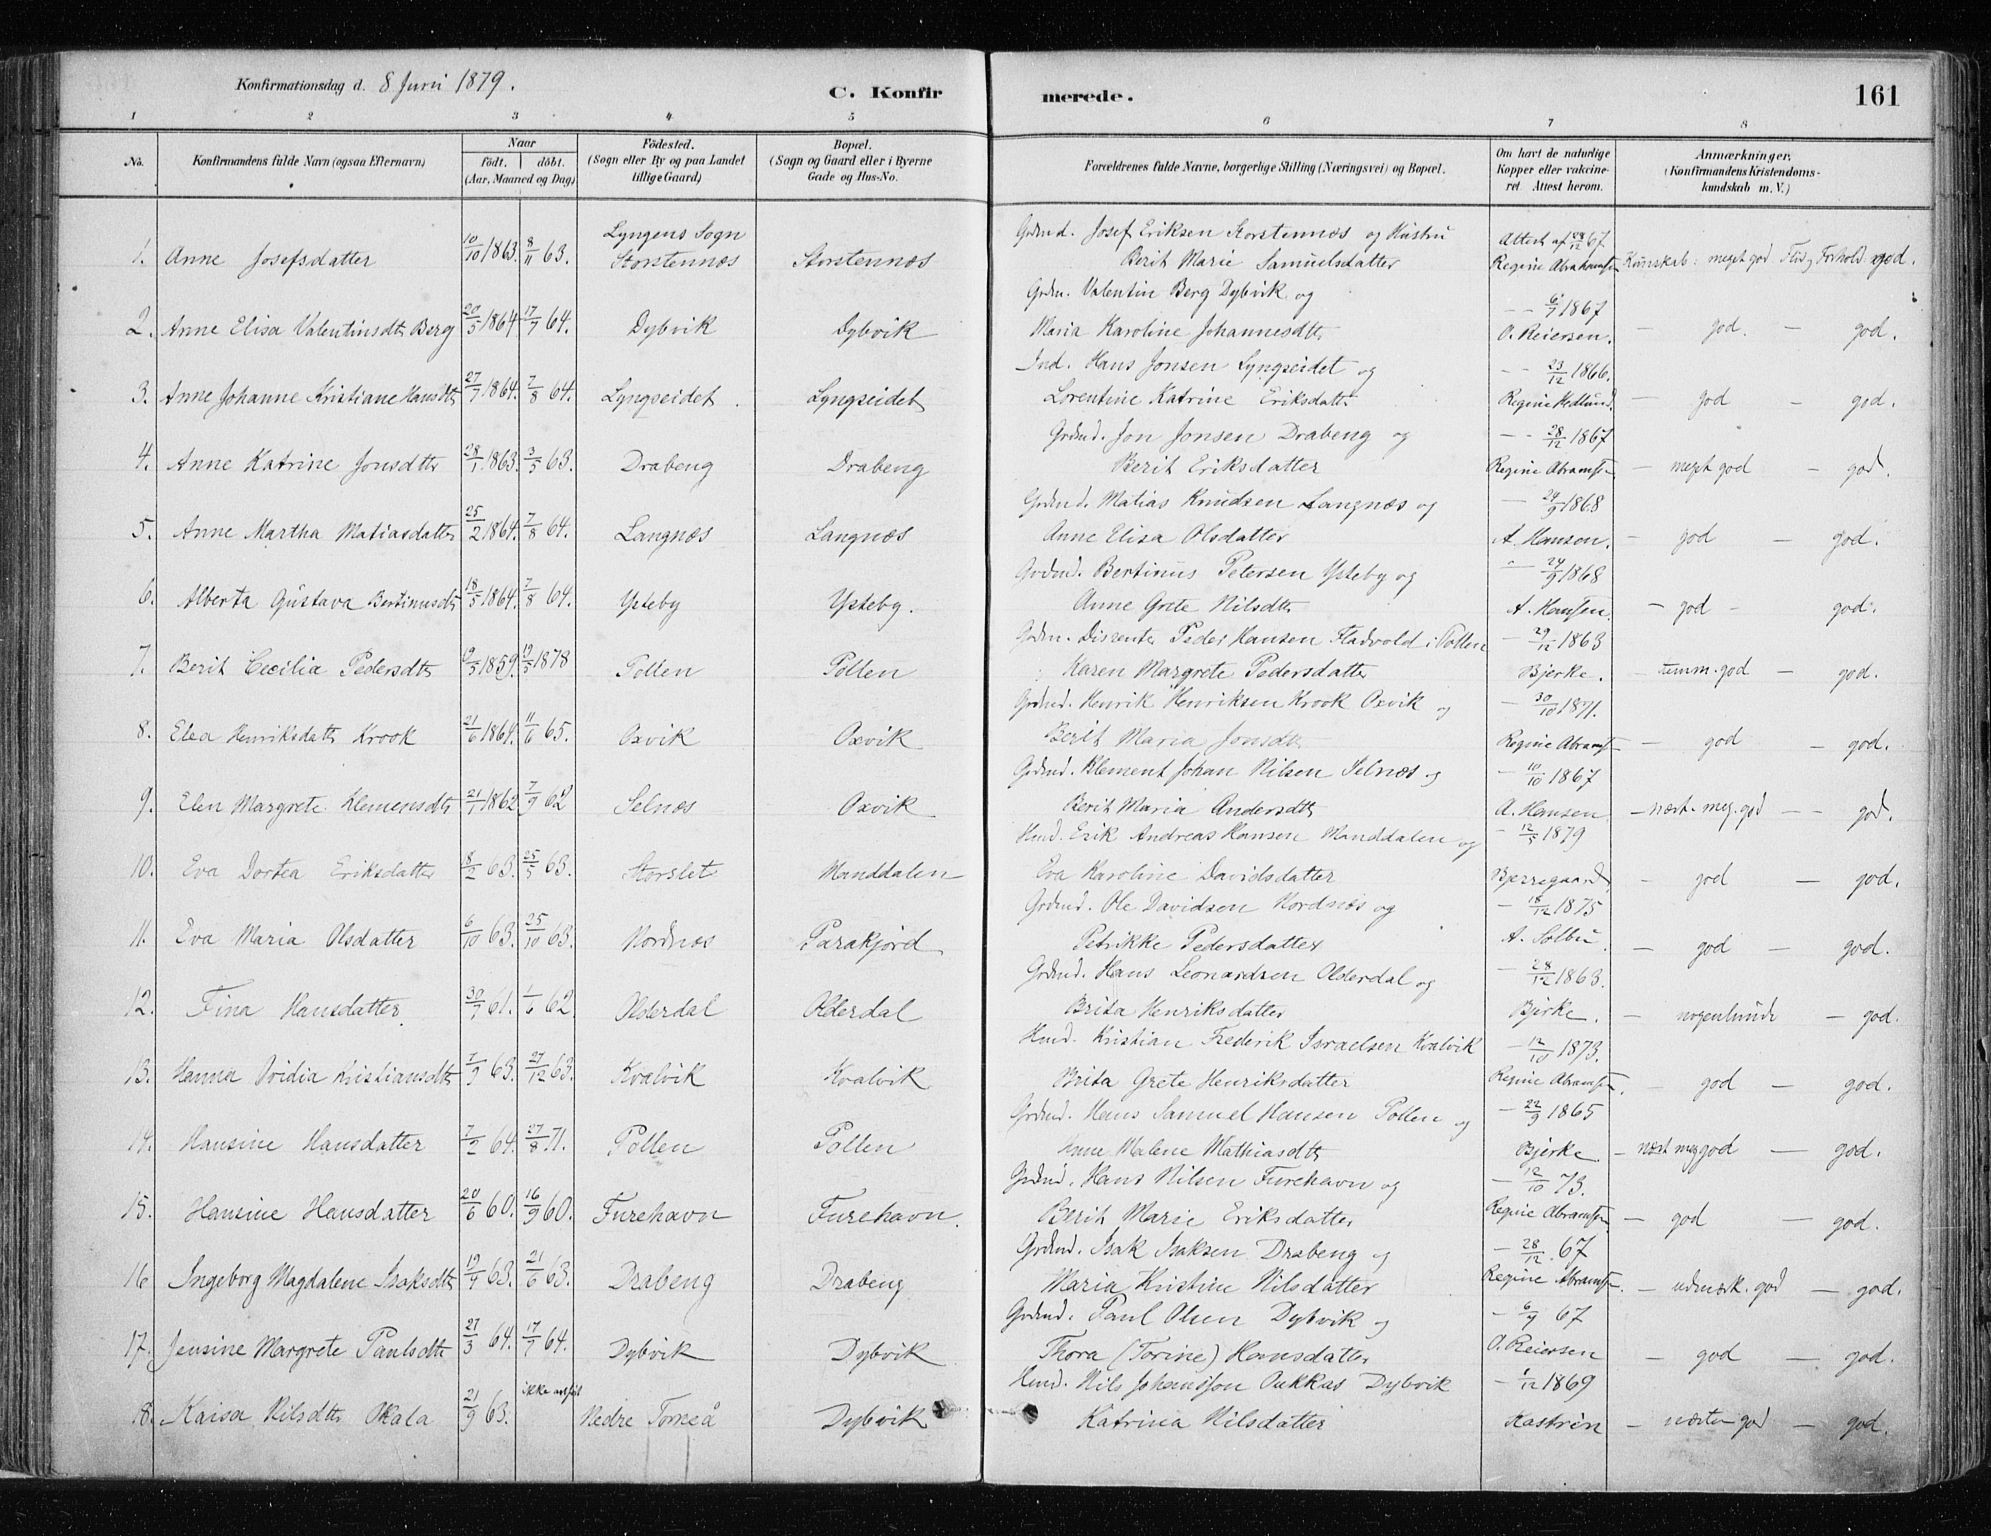 Konfirmationsdag d. 8 Juni 1879.
C. Konfirmerede.
161
1 2 3 4 5 6 7 8
No.
Konfirmandens fulde Navn (ogsaa Efternavn)
Naar
födt. döbt.
(Aar, Maaned og Dag)
Födested.
(Sogn eller By og paa Landet tillige Gaard)
Bopæl.
(Sogn og Gaard eller i Byerne Gade og Hus-No.
Forældrenes fulde Navne, borgerlige Stilling (Næringsvei) og Bopæl.
Om havt de naturlige Kopper eller vakcineret. Attest herom.
Anmærkninger,
(Konfirmandens Kristendomskundskab m. V.)
1. Anne Josefsdatter 10/10 1863. 8/11 63. Lyngens Sogn Storstennæs Storstennæs Grdmd. Josef Eriksen Storstennæs og Hustru Berit Marie Samuelsdatter Attest af 28/12 67. Regine Abrahamsen Kunskab: meget god Flid og Forhold: god.
2. Anne Elisa Valentinsdtr Berg 20/5 1864 17/7 64. Dybvik Dybvik Grdm. Valentin Berg Dybvik og Maria Karoline Johannesdtr - - 6/9 1867 O. Reiersen. - god. - god.
3. Anne Johanne Kristiane Hansdtr 27/7 1864. 7/8 64. Lyngseidet Lyngseidet Ind. Hans Jonsen Lyngseidet og Lorentine Katrine Eriksdatter - - 23/12 1866. Regine Hedlund. - god - god.
4. Anne Katrine Jonsdtr 28/1 1863. 3/5 63. Drabeng Drabeng Grdmd. Jon Jonsen Drabeng og Berit Eriksdatter - - 28/12 1867 Regine Abramsen - meget god - god.
5. Anne Martha Matiasdatter 25/2 1864. 7/8 64. Langnæs Langnæs Grdmd. Matias Knudsen Langnæs og Anne Elisa Olsdatter - 24/9 1868 A. Hansen. - god - god.
6. Alberta Gustava Bertinusdtr 18/5 1864. 7/8 64. Ysteby Ysteby. Grdmd. Bertinus Petersen Ysteby og Anne Grete Nilsdtr - 24/9 1868 A. Hansen. - god - god.
7. Berit Cecilia Pedersdtr /5 1859. 19/5 1878 Pollen Pollen Grdm. Dissenter Peder Hansen Fladvold i Pollen Karen Margrete Pedersdatter - 29/12 1863 Bjerke. - temm. god - god.
8. Elea Henriksdatter Krook 21/6 1864. 11/6 65. Oxvik Oxvik Grdmd. Henrik Henriksen Krook Oxvik og Berit Maria Jonsdtr - 30/10 1871. Regine Abrams - god - god.
9. Elen Margrete Klemensdtr 21/7 1862 7/9 62 Selnæs Oxvik Grdmd. Klement Johan Nilsen Selnæs og Berit Maria Andersdtr - 10/10 1867 A. Hansen - næst. meg. god - - god.
10. Eva Dortea Eriksdatter 18/2 63. 25/5 63. Storslet Manddalen Hmd. Erik Andreas Hansen Manddalen og Eva Karoline Davidsdatter - 12/5 1879 Bjerregaard - god - god.
11. Eva Maria Olsdatter 6/10 63. 25/10 63. Nordnæs Parakjord Grdmd. Ole Davidsen Nordnæs og Petrikke Pedersdatter - 18/12 1875 A. Solbu. - god - god.
12. Fina Hansdatter. 30/7 61. 1/6 62 Olderdal Olderdal Grdmd. Hans Leonardsen Olderdal og Brita Henriksdatter - 28/12 1863. Bjerke. - nogenlunde - god.
13. Hanna Kristiansdtr 7/9 63. 27/12 63. Kvalvik Kvalvik Hmd. Kristian Frederik Israelsen Kvalvik Brita Grete Henriksdatter - 12/10 1873. Regine Abramsen - god - god.
14. Hansine Hansdatter 7/2 64. 27/8 71. Pollen Pollen Grdmd. Hans Samuel Hansen Pollen og Anne Malene Mathiasdtr - 22/9 1865 Bjerke - næst meg god - god.
15. Hansine Hansdatter 20/6 60. 16/9 60. Furehavn Furehavn. Grdmd. Hans Nilsen Furehavn og Berit Marie Eriksdatter - 12/10 73. Regine Abramsen - god - god.
16 Ingeborg Magdalene Isaksdtr 19/4 63. 21/6 63. Drabeng Drabeng Grdmd. Isak Isaksen Drabeng og Maria Kristine Nilsdatter - 28/12. 67 Regine Abramsen. - udmærk. god - god.
17. Jensine Margrete Paulsdtr 27/3 64. 17/7 64. Dybvik Dybvik Grdmd. Paul Olsen Dybvik og Thora (Torine) Hansdatter - 6/9 67 O. Reiersen - god - god.
18. Kaisa Nilsdtr Okala 21/9 63. ikke Nedre Torneå Dybvik Hmd. Nils Johansson Dybvik Katrina Nilsdatter - 1/12 1869 Kastrén - næsten god - god.